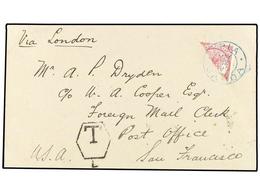 Via London
Mr. A. P. Dryden
c/o W. A. Cooper Esqr.
Foreign Mail Clerk
Post Office
San Francisco
U.S.A.
T
L